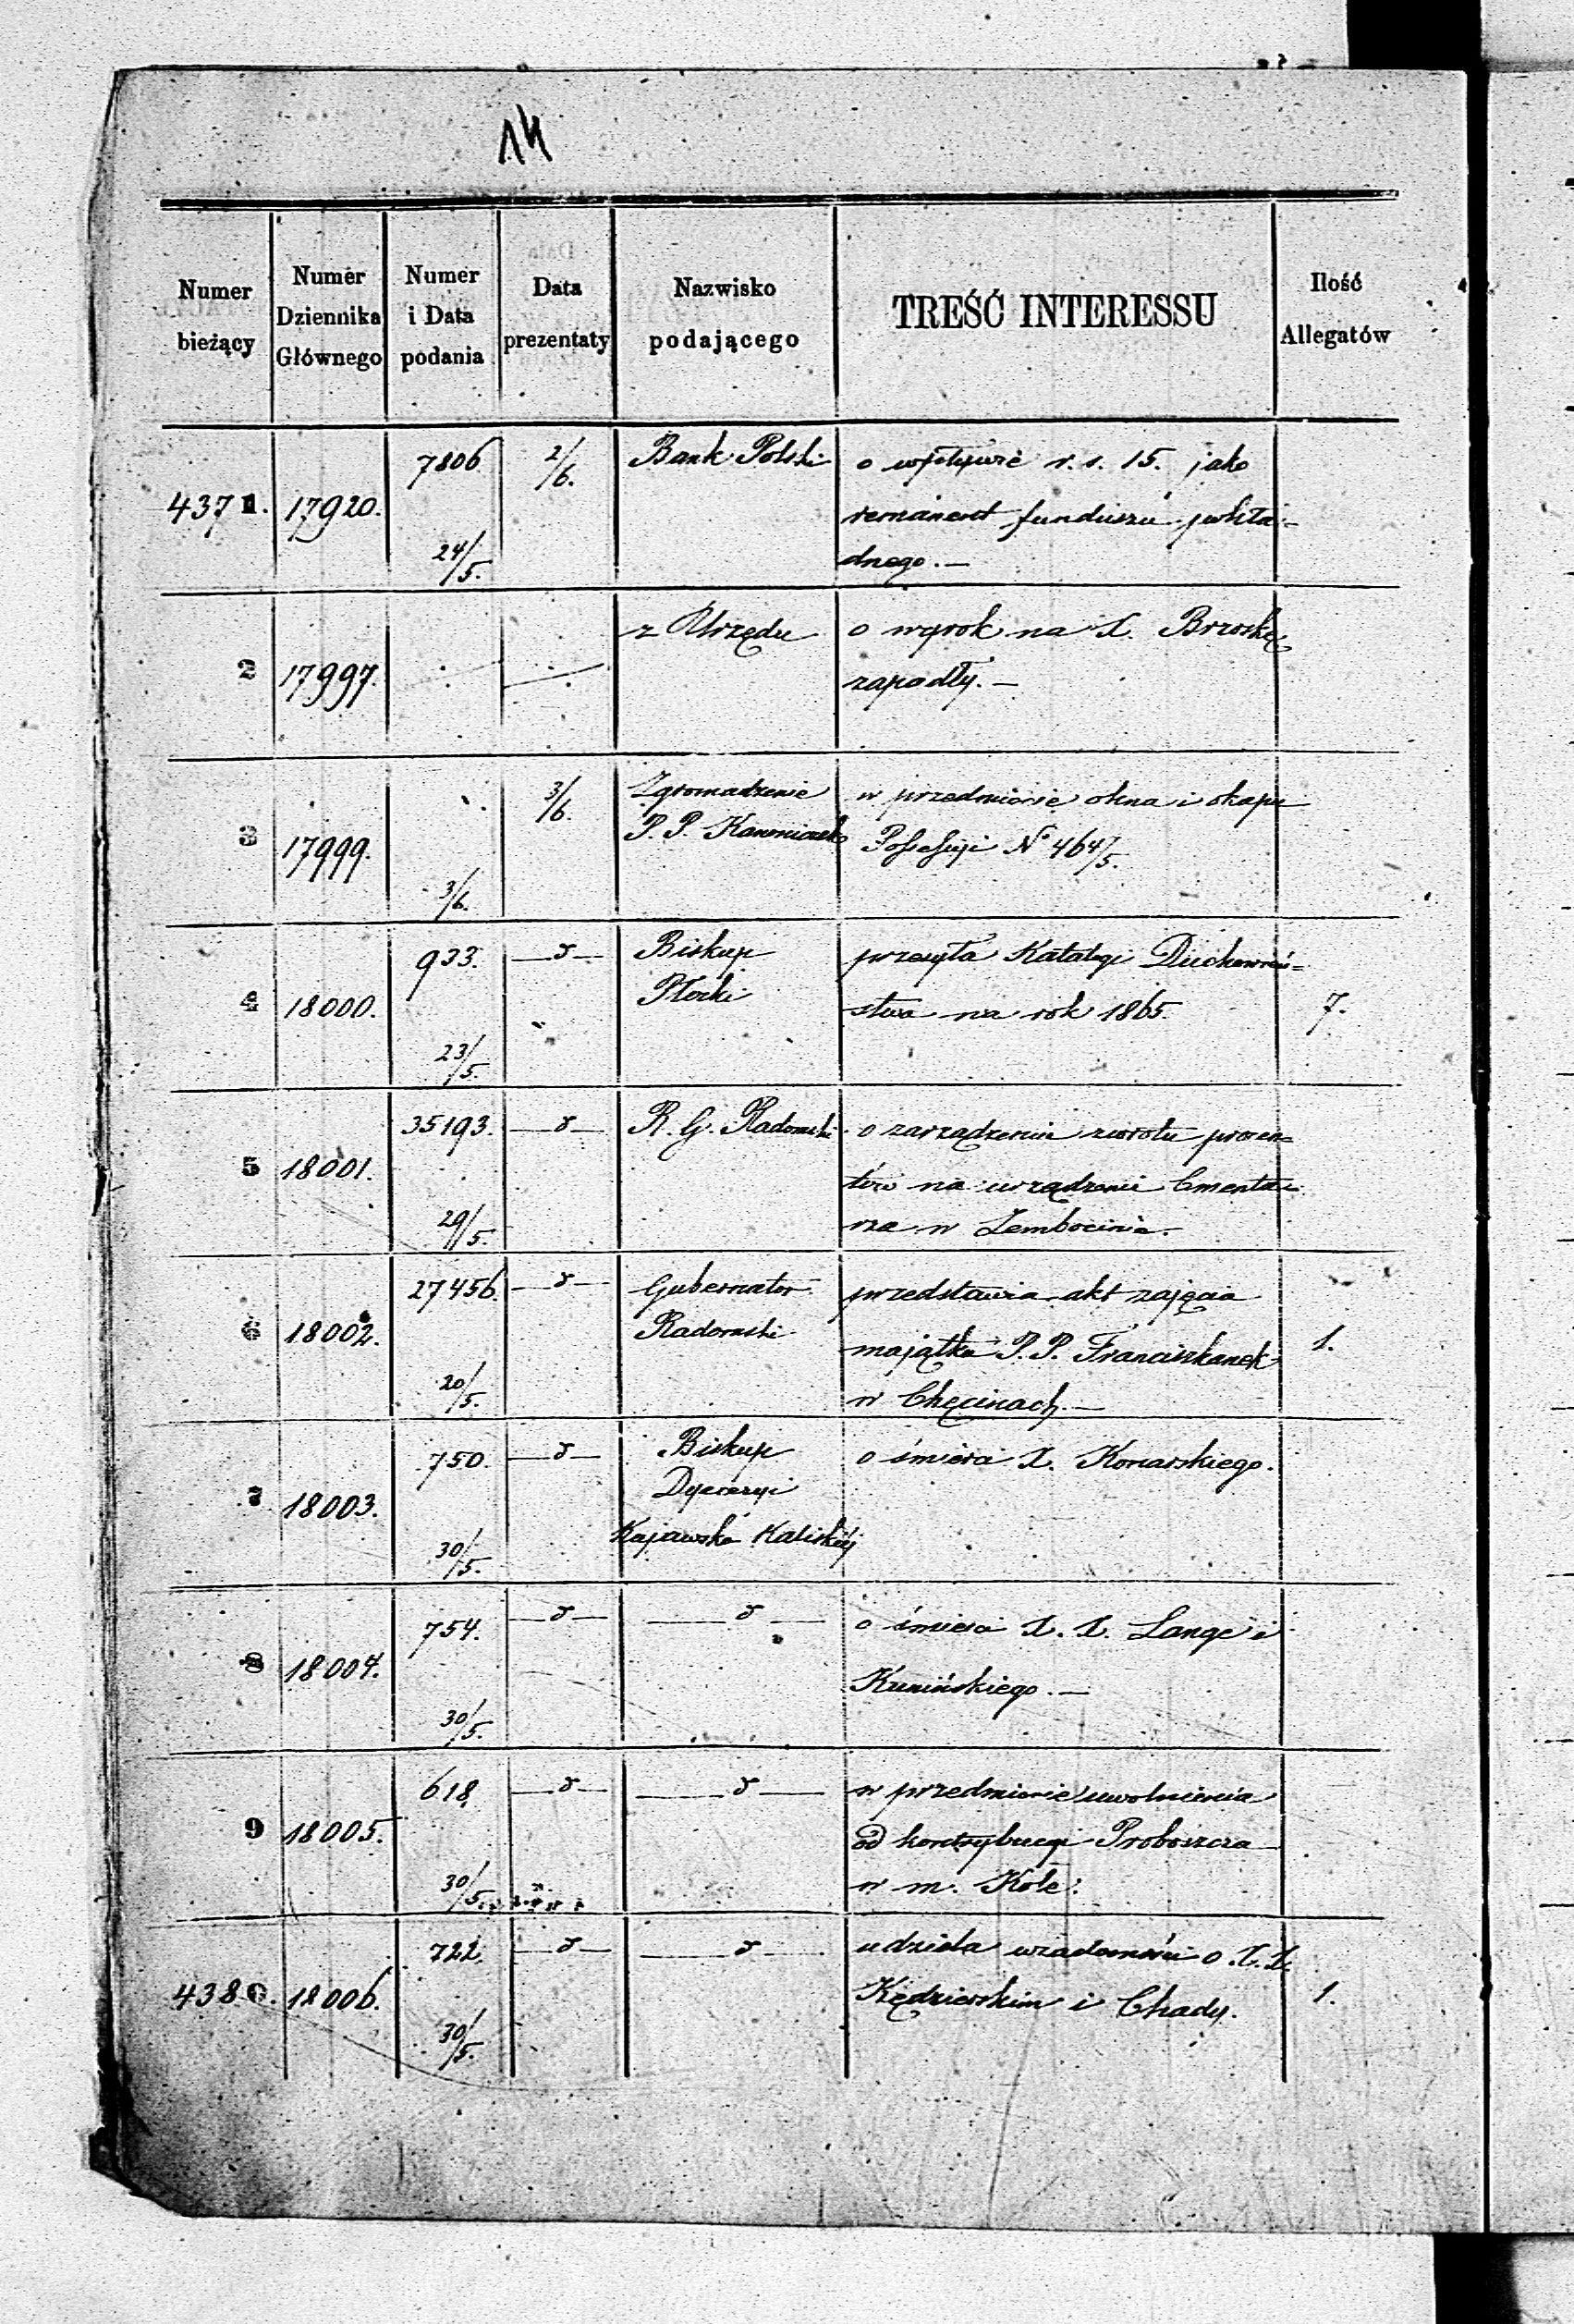 14
Numer bieżący | Numer Dziennika Głównego | Numer i Data podania | Data prezentaty | Nazwisko podającego | TREŚĆ INTERESSU | Ilość Allegatów
4371. | 17920. | 7806 24/5. | 2/6. | Bank Polski | o wpływie r. s. 15. jako
remanent funduszu pokła-
dnego. —
2 | 17997. | z Urzędu | o wyrok na X. Brzoskę
zapadły. —
3 | 17999. | 3/6. | 3/6. | Zgromadzenie | w przedmiocie okna i okapu
P. P. Kanoniczek | Possessyi No 464/5.
4 | 18000. | 933. 23/5. | —d— | Biskup | przesyła Katalogi Duchowień=
Płocki | stwa na rok 1865. | 7.
5 | 18001. | 35193. 29/5. | —d— | R. G. Radomski | o zarządzenie zwrotu procen=
tów na urządzenie Cmenta=
rza w Zembocinie.
6 | 18002. | 27456. 20/5. | —d— | Gubernator | przedstawia akt zajęcia
Radomski | majątku P. P. Franciszkanek | 1.
w Chęcinach. —
7 | 18003. | 750. 30/5. | —d— | Biskup | o śmierci X. Konarskiego.
Dyecezyi
Kujawsko Kaliskiej
8 | 18004. | 754. 30/5. | —d— | —d— | o śmierci X. X. Lange i
Kunińskiego. —
9 | 18005. | 618. 30/5. | —d— | —d— | w przedmiocie uwolnienia
od kontrybucyi Proboszcza
w m. Kole.
4380. | 18006. | 722. 30/5. | —d— | —d— | udziela wiadomości o X. X.
Kędzierskim i Chady. | 1.